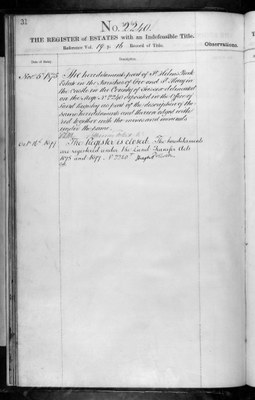 31
No. 2240.
THE REGISTER of ESTATES with an Indefeasible Title.
Reference Vol. 19 p. 16 Record of Title.
Observations.
Date of Entry.
Description.
Nov. 5th 1875
The hereditaments part of St. Helens Park
Estate in the Parishes of Ore and St. Mary in
the Castle in the County of Sussex delineated
on the Map No. 2240 deposited in the Office of
Land Registry as part of the description of the
same hereditaments and thereon edged with
red together with the mines and minerals
under the same.
Oct. 18th 1899
The Register is closed. The hereditaments
are registered under the Land Transfer Acts
1875 and 1897. No. 2240